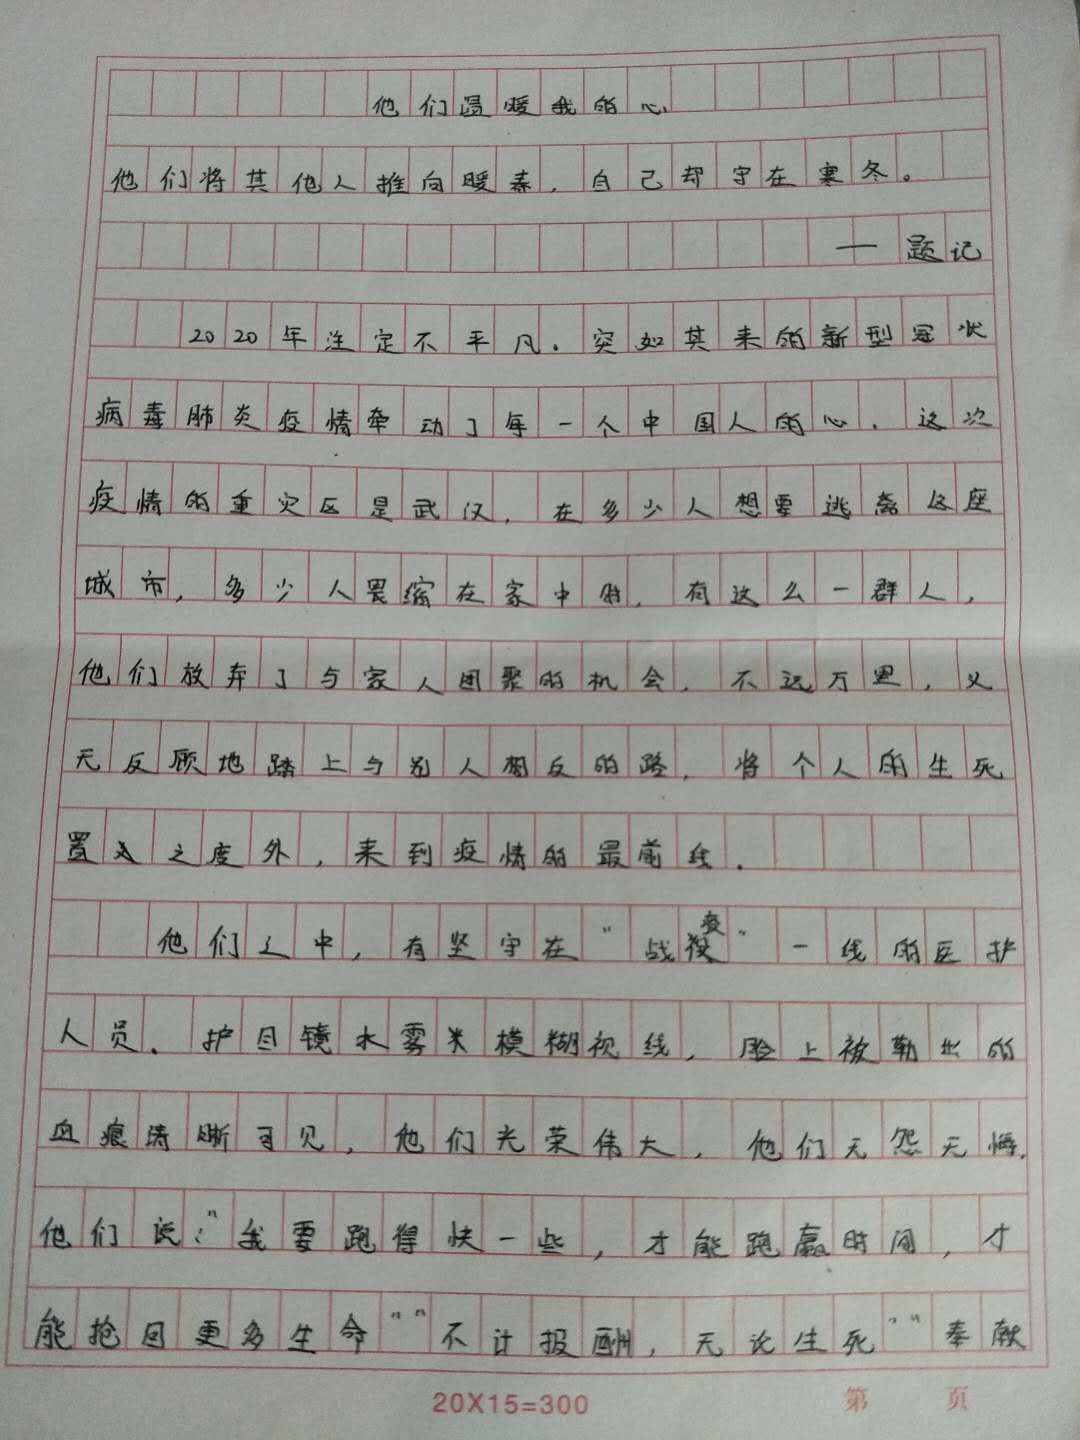 他们温暖我的心
他们将其他人推向暖春，自己却守在寒冬。
——题记
2020年注定不平凡．突如其来的新型冠状
病毒肺炎疫情牵动了每一个中国人的心．这次
疫情的重灾区是武汉，在多少人想要逃离这座
城市，多少人畏缩在家中时，有这么一群人，
他们放弃了与家人团聚的机会，不远万里，义
无反顾地踏上与别人相反的路，将个人的生死
置之度外，来到疫情的最前线．
他们之中，有坚守在“战疫”一线的医护
人员．护目镜水雾米模糊视线，脸上被勒出的
血痕清晰可见，他们光荣伟大，他们无怨无悔．
他们说：“我要跑得快一些，才能跑赢时间，才
能抢回更多生命”“不计报酬，无论生死”“奉献
20X15=300
第 页